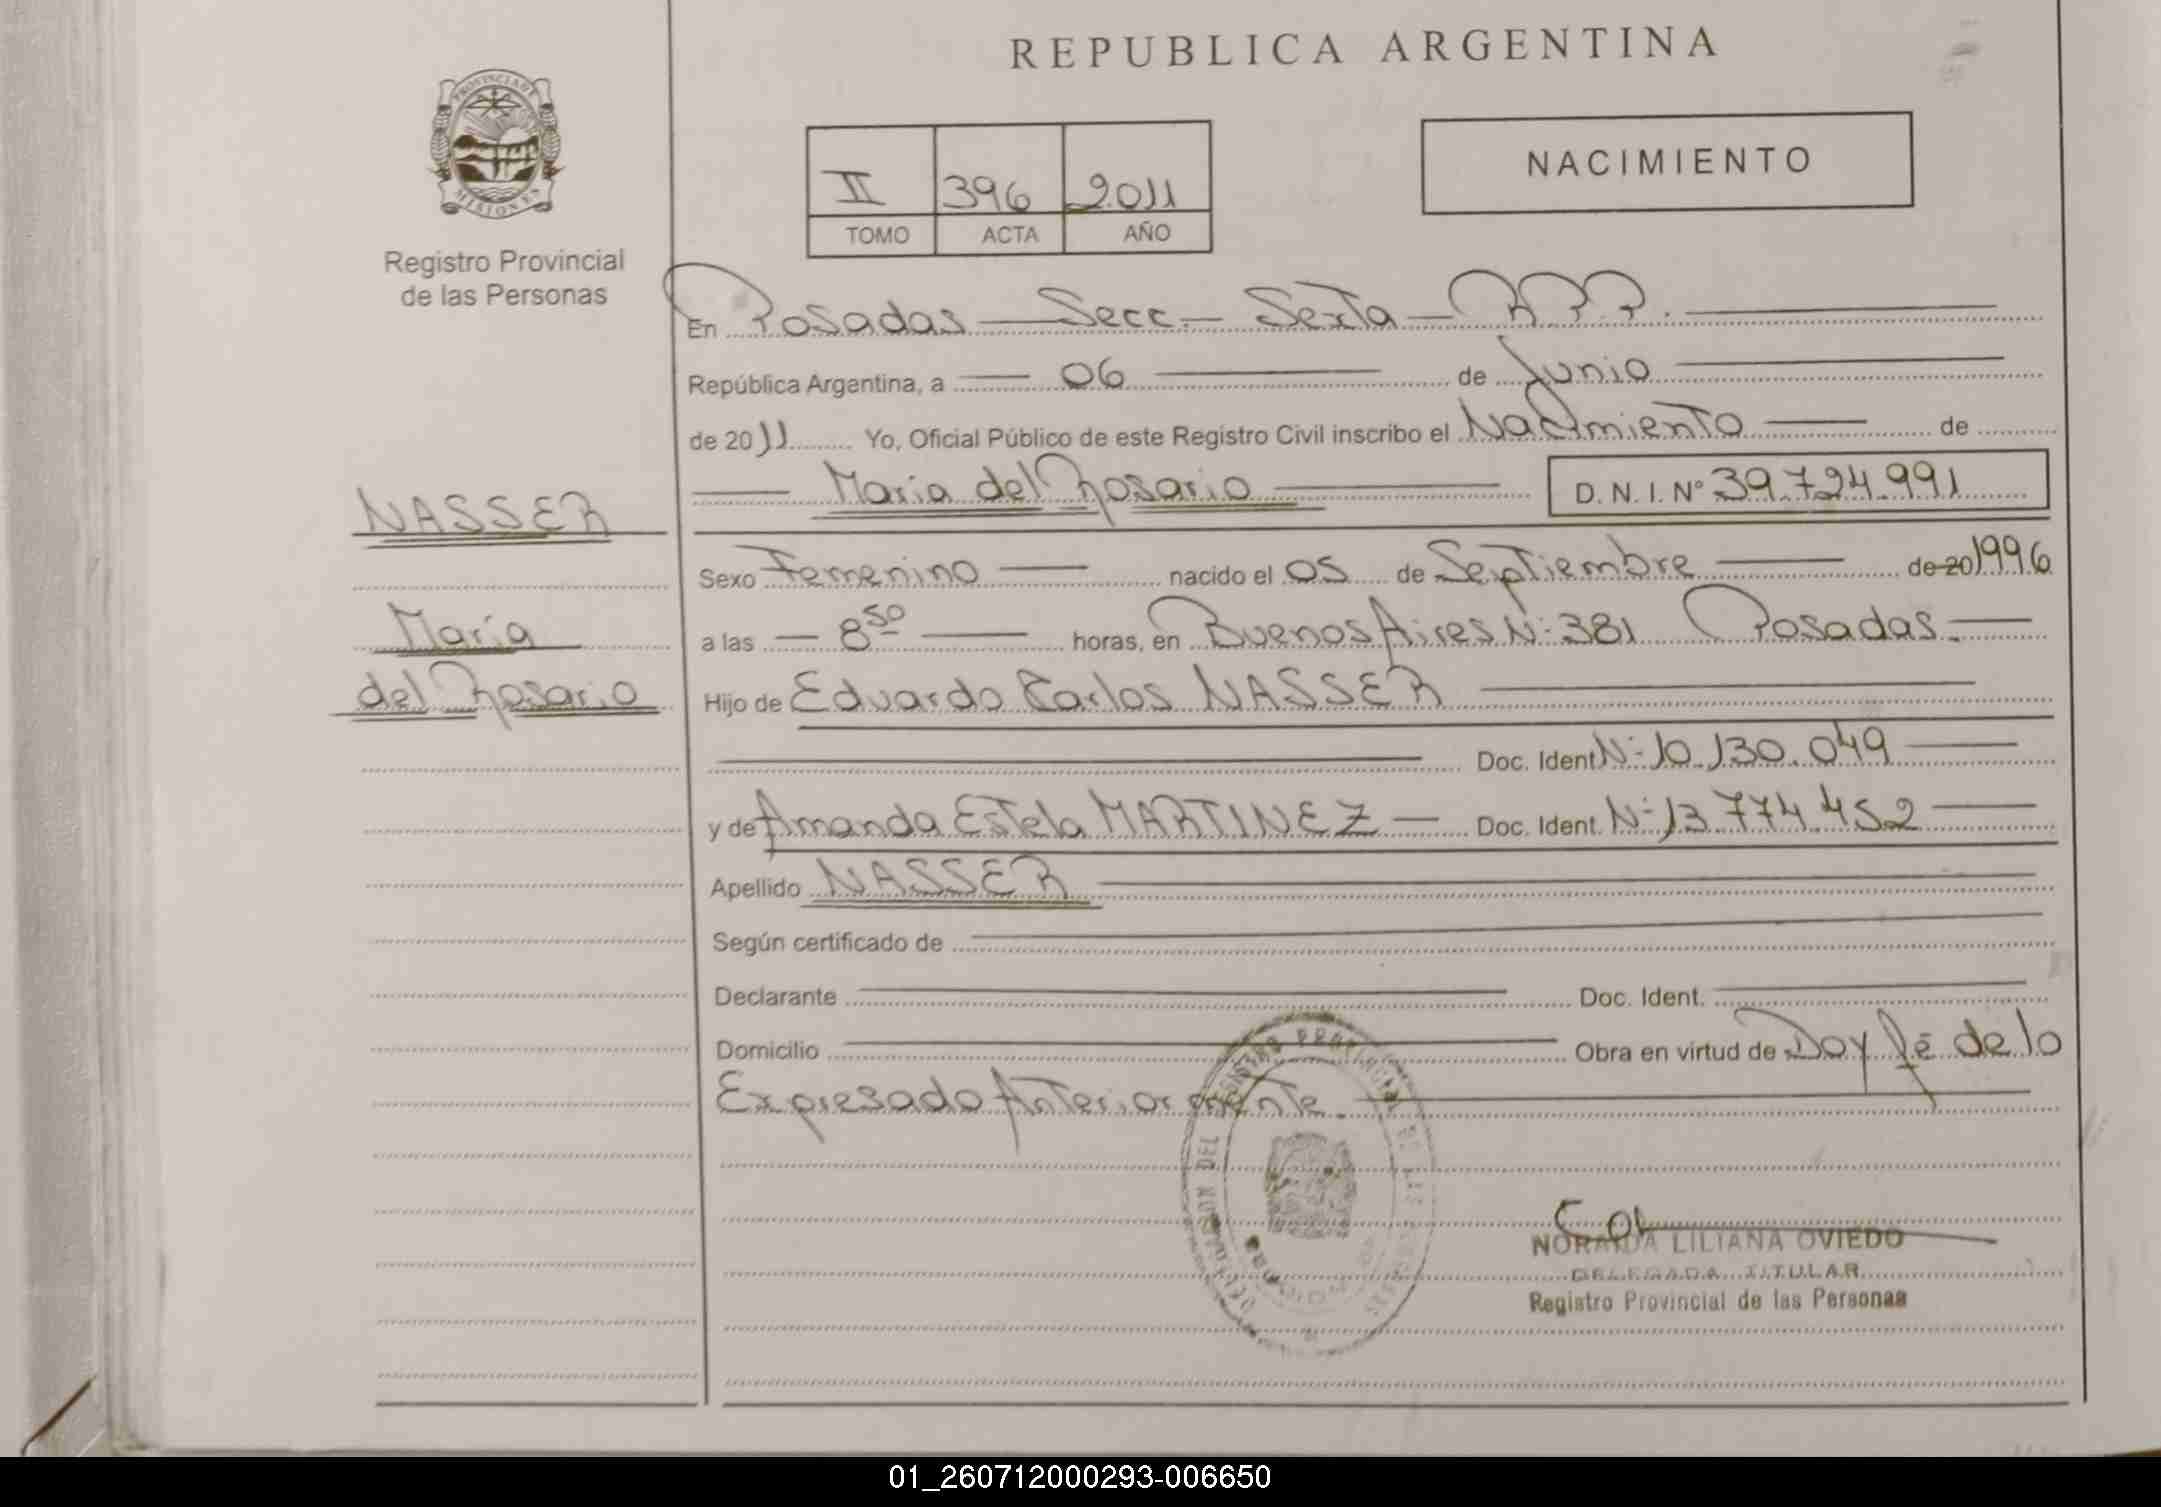 REPUBLICA ARGENTINA
PROVINCIA DE
MISIONES
Registro Provincial
de las Personas
II 396 2011
TOMO ACTA AÑO
NACIMIENTO
En Posadas Secc. Sexta R.P.P.
República Argentina, a 06 de Junio
de 2011 Yo, Oficial Público de este Registro Civil inscribo el Nacimiento de
María del Rosario D.N.I.Nº 39.724.991
NASSER
María
del Rosario
Sexo Femenino nacido el 05 de Septiembre de 20 1996
a las 8 50 horas, en Buenos Aires Nº 381 Posadas.
Hijo de Eduardo Carlos NASSER
Doc. Ident Nº 10.130.049
y de Amanda Estela MARTINEZ Doc. Ident. Nº 13.774.452
Apellido NASSER
Según certificado de
Declarante Doc. Ident.
Domicilio Obra en virtud de Doy fé de lo
Expresado Anteriormente.
DEL REGISTRO PROVINCIAL DE LAS PERSONAS
NORAIDA LILIANA OVIEDO
DELEGADA TITULAR
Registro Provincial de las Personas
01_260712000293-006650